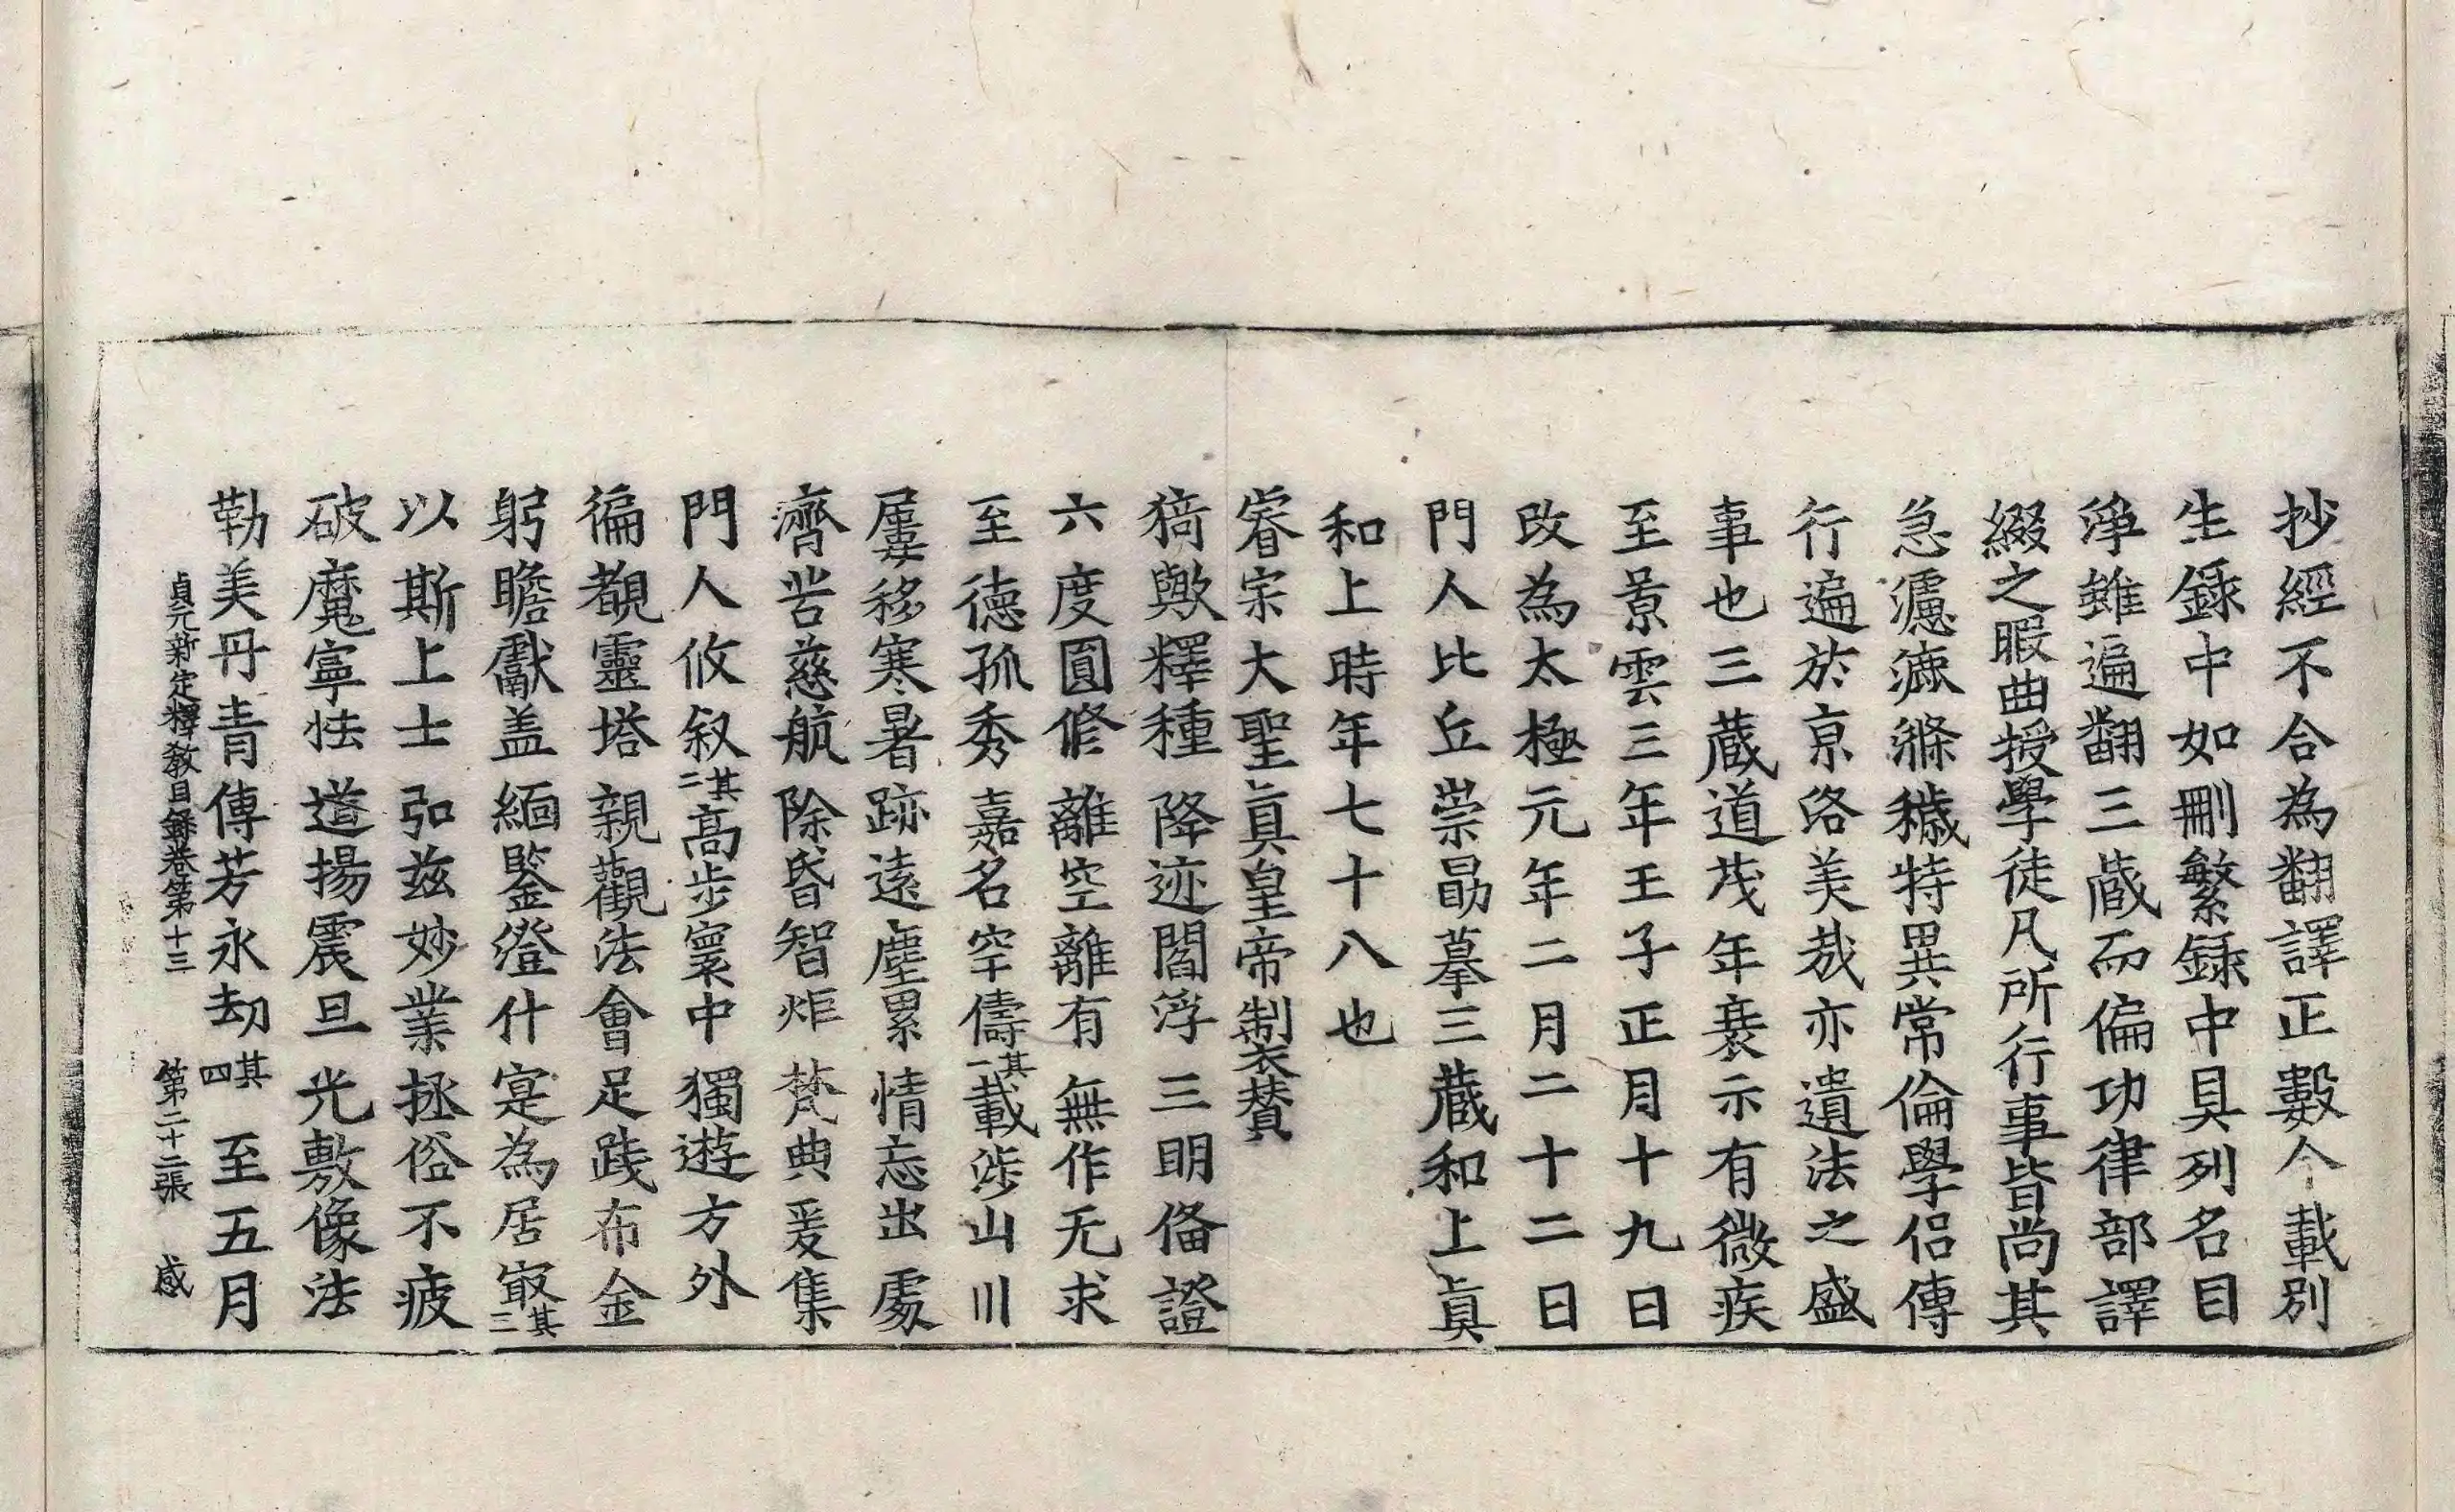 抄經不合為翻譯正數今載別
生録中如刪繁録中具列名目
淨雖遍翻三蔵而偏功律部譯
綴之暇曲授學徒凡所行事皆尚其
急濾漉滌穢特異常倫學侶傳
行遍於京洛美哉亦遺法之盛
事也三蔵道茂年衰示有微疾
至景雲三年壬子正月十九日
改為太極元年二月二十二日
門人比丘崇勗摹三蔵和上真
和上時年七十八也
睿宗大聖真皇帝制表賛
猗歟釋種降迹閻浮三明俻證
六度圓修離空離有無作无求
至德孤秀嘉名罕儔其一載涉山川
屢移寒暑跡遠塵累情忘出處
濟苦慈航除昏智炬梵典爰集
門人攸叙其二高步寰中獨遊方外
徧覩靈塔親觀法會足踐布金
躬瞻獻盖緬鑒澄什寔為居㝡其三
以斯上士弘兹妙業拯俗不疲
破魔寧怯道揚震旦光敷像法
勒美丹青傳芳永刧其四　至五月
貞元新定釋教目録卷第十三　第二十二張　感